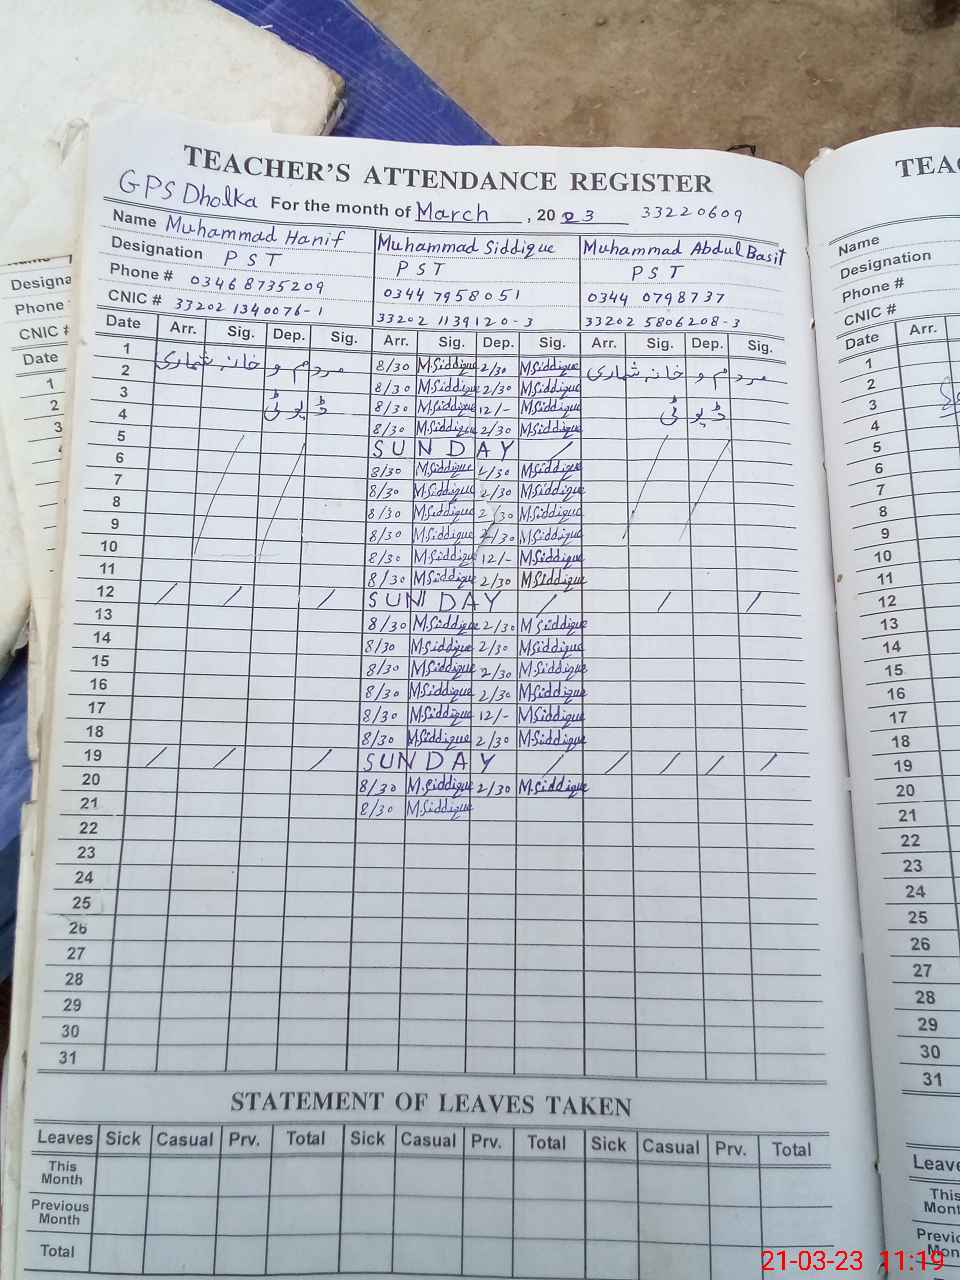 TEACHER'S ATTENDANCE REGISTER
GPS Dholka For the month of March, 2023 33220609
Name Muhammad Hanif Muhammad Siddique Muhammad Abdul Basit
Designation PST PST PST
Phone # 03468735209 0344 7958051 0344 0798737
CNIC # 33202 1340076-1 33202 1139120-3 33202 5806208-3
Date Arr. Sig. Dep. Sig. Arr. Sig. Dep. Sig. Arr. Sig. Dep. Sig.
1 مردم و خانہ شماری 8/30 M.Siddique 2/30 M.Siddique مردم و خانہ شماری
2 8/30 M.Siddique 2/30 M.Siddique
3 ڈیوٹی 8/30 M.Siddique 12/- M.Siddique ڈیوٹی
4 8/30 M.Siddique 2/30 M.Siddique
5 SUNDAY
6 8/30 M.Siddique 2/30 M.Siddique
7 8/30 M.Siddique 2/30 M.Siddique
8 8/30 M.Siddique 2/30 M.Siddique
9 8/30 M.Siddique 2/30 M.Siddique
10 8/30 M.Siddique 12/- M.Siddique
11 8/30 M.Siddique 2/30 M.Siddique
12 SUNDAY
13 8/30 M.Siddique 2/30 M.Siddique
14 8/30 M.Siddique 2/30 M.Siddique
15 8/30 M.Siddique 2/30 M.Siddique
16 8/30 M.Siddique 2/30 M.Siddique
17 8/30 M.Siddique 12/- M.Siddique
18 8/30 M.Siddique 2/30 M.Siddique
19 SUNDAY
20 8/30 M.Siddique 2/30 M.Siddique
21 8/30 M.Siddique
22
23
24
25
26
27
28
29
30
31
STATEMENT OF LEAVES TAKEN
Leaves Sick Casual Prv. Total Sick Casual Prv. Total Sick Casual Prv. Total
This Month
Previous Month
Total
Name
Designation
Phone #
CNIC #
Date Arr.
1
2
3
4
5
6
7
8
9
10
11
12
13
14
15
16
17
18
19
20
21
22
23
24
25
26
27
28
29
30
31
21-03-23 11:19